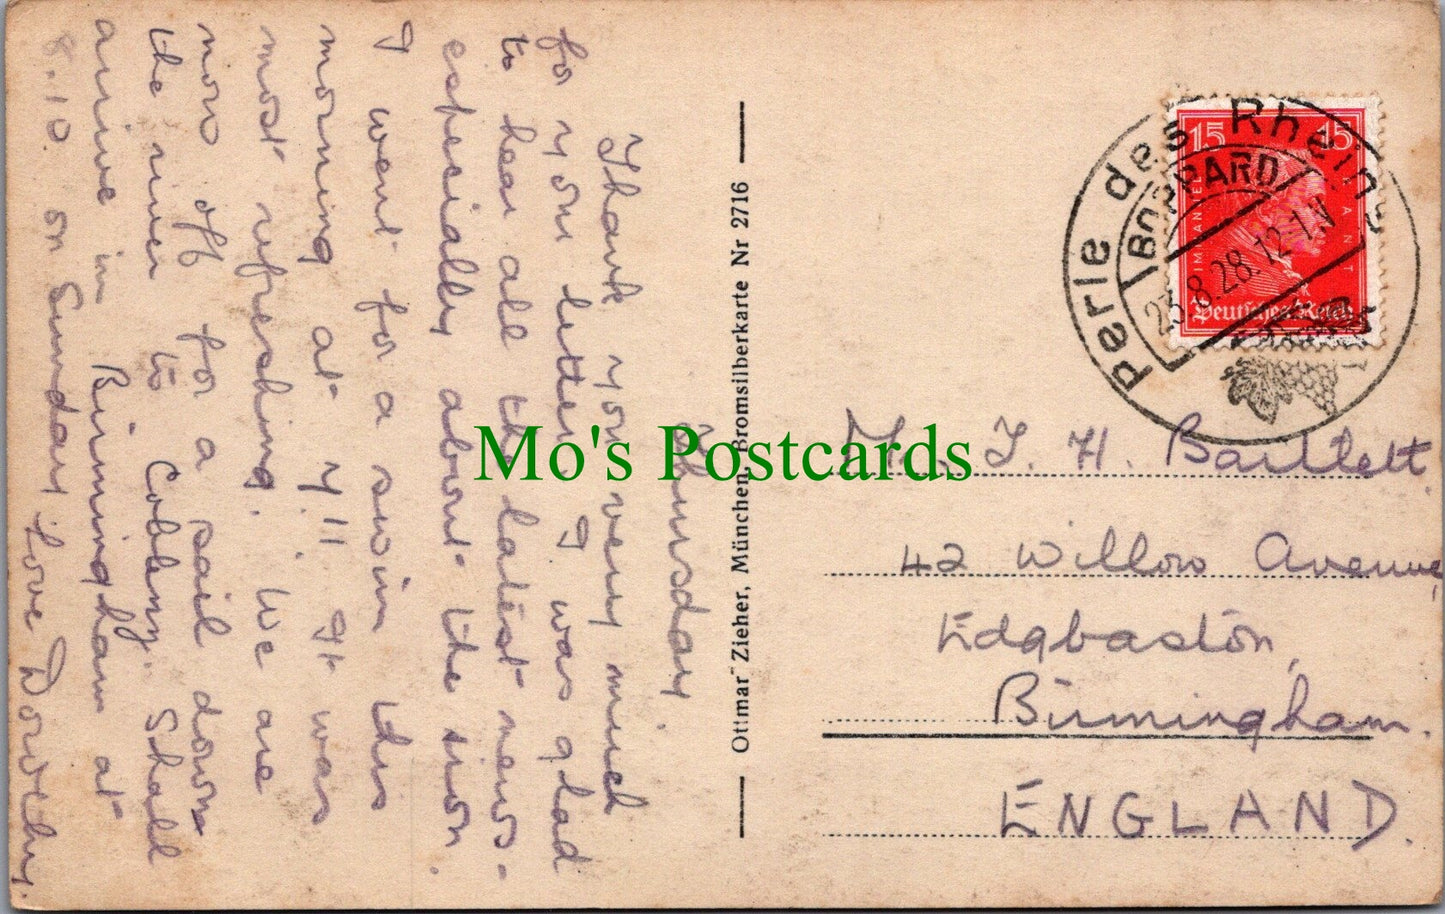 Thursday.
Thank you very much
for your letter. I was glad
to hear all the latest news -
especially about the iron.
I went for a swim this
morning at 7.11 It was
most refreshing. We are
now off for a sail down
the river to Coblenz. Shall
arrive in Birmingham at
8.10 on Sunday. Love Dorothy.
Ottmar Zieher, München, Bromsilberkarte Nr 2716
Mo's Postcards
Perle des Rheins
BOPPARD
23.8.28.12-1.N
15 15
IMMANUEL KANT
Deutsches Reich
Mr. J. H. Bartlett.
42 Willow Avenue,
Edgbaston,
Birmingham.
ENGLAND.